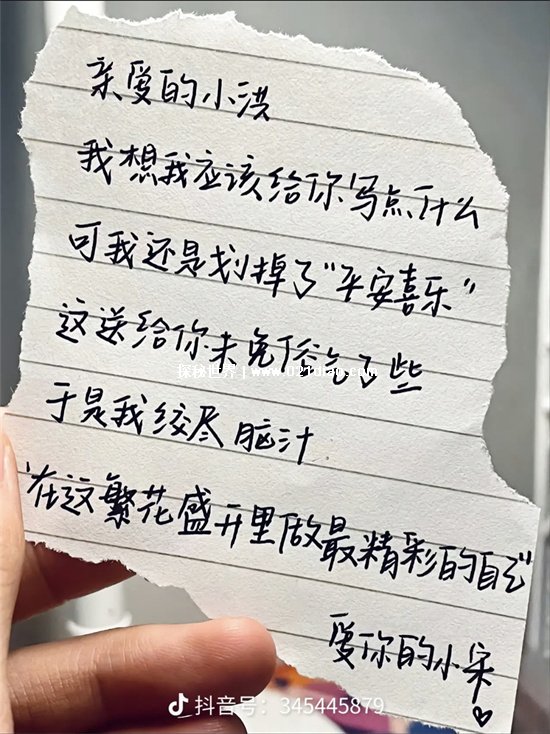 亲爱的小洪
我想我应该给你写点什么
可我还是划掉了“平安喜乐”
这送给你未免俗气了些
探秘世界 | www.021dlao.com
于是我绞尽脑汁
“在这繁花盛开里做最精彩的自己”
爱你的小宋
抖音号：345445879